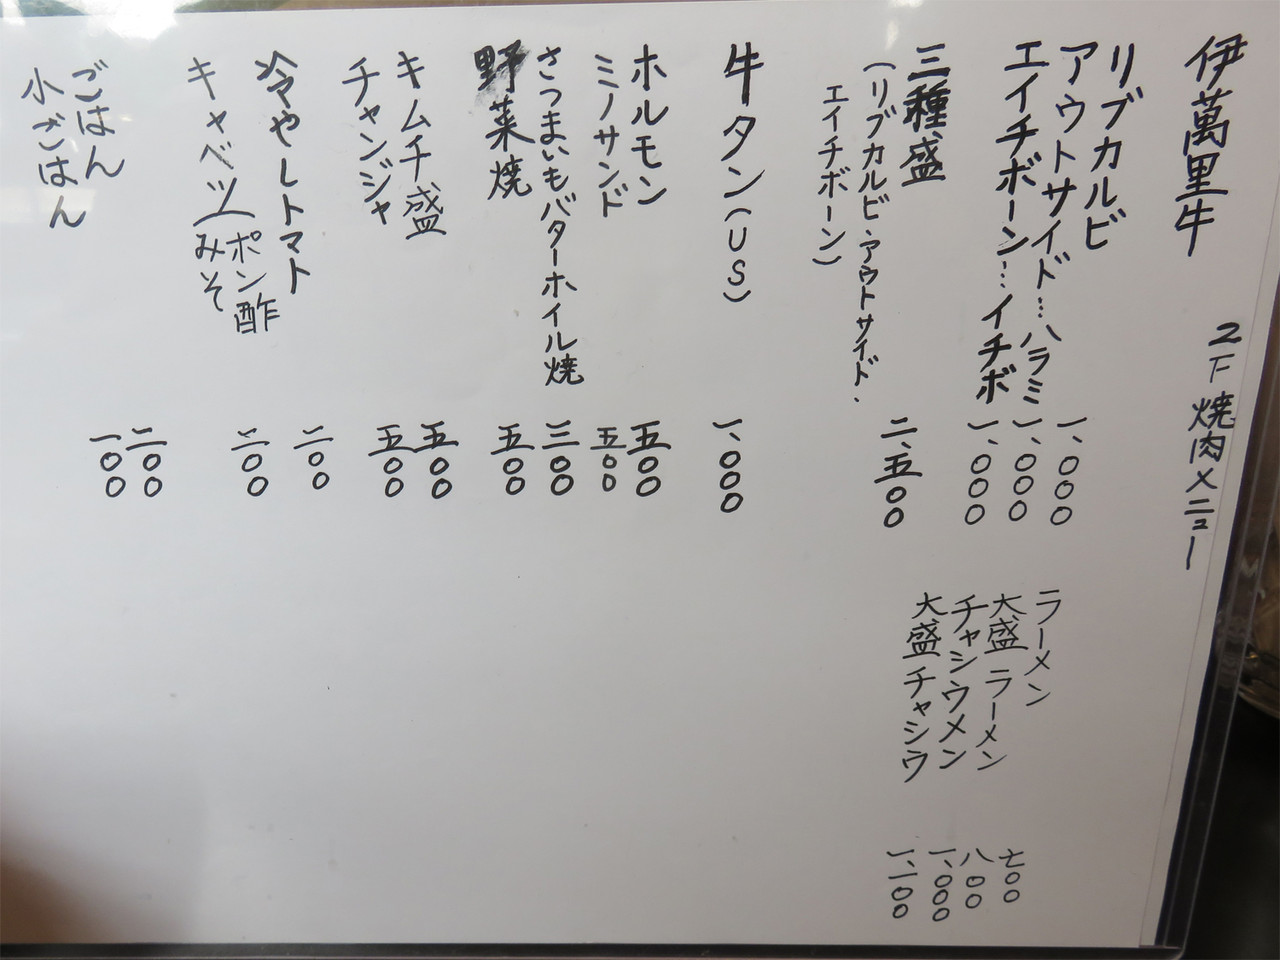 伊萬里牛
2F 焼肉メニュー
リブカルビ 一、〇〇〇
アウトサイド…ハラミ 一、〇〇〇
エイチボーン…イチボ 一、〇〇〇
三種盛 二、五〇〇
(リブカルビ・アウトサイド・
エイチボーン)
牛タン(US) 一、〇〇〇
ホルモン 五〇〇
ミノサンド 五〇〇
さつまいもバターホイル焼 三〇〇
野菜焼 五〇〇
キムチ盛 五〇〇
チャンジャ 五〇〇
冷やしトマト 二〇〇
キャベツ(ポン酢 二〇〇
みそ
ごはん 二〇〇
小ごはん 一〇〇
ラーメン 七〇〇
大盛ラーメン 八〇〇
チャシウメン 一、〇〇〇
大盛チャシウ 一、一〇〇